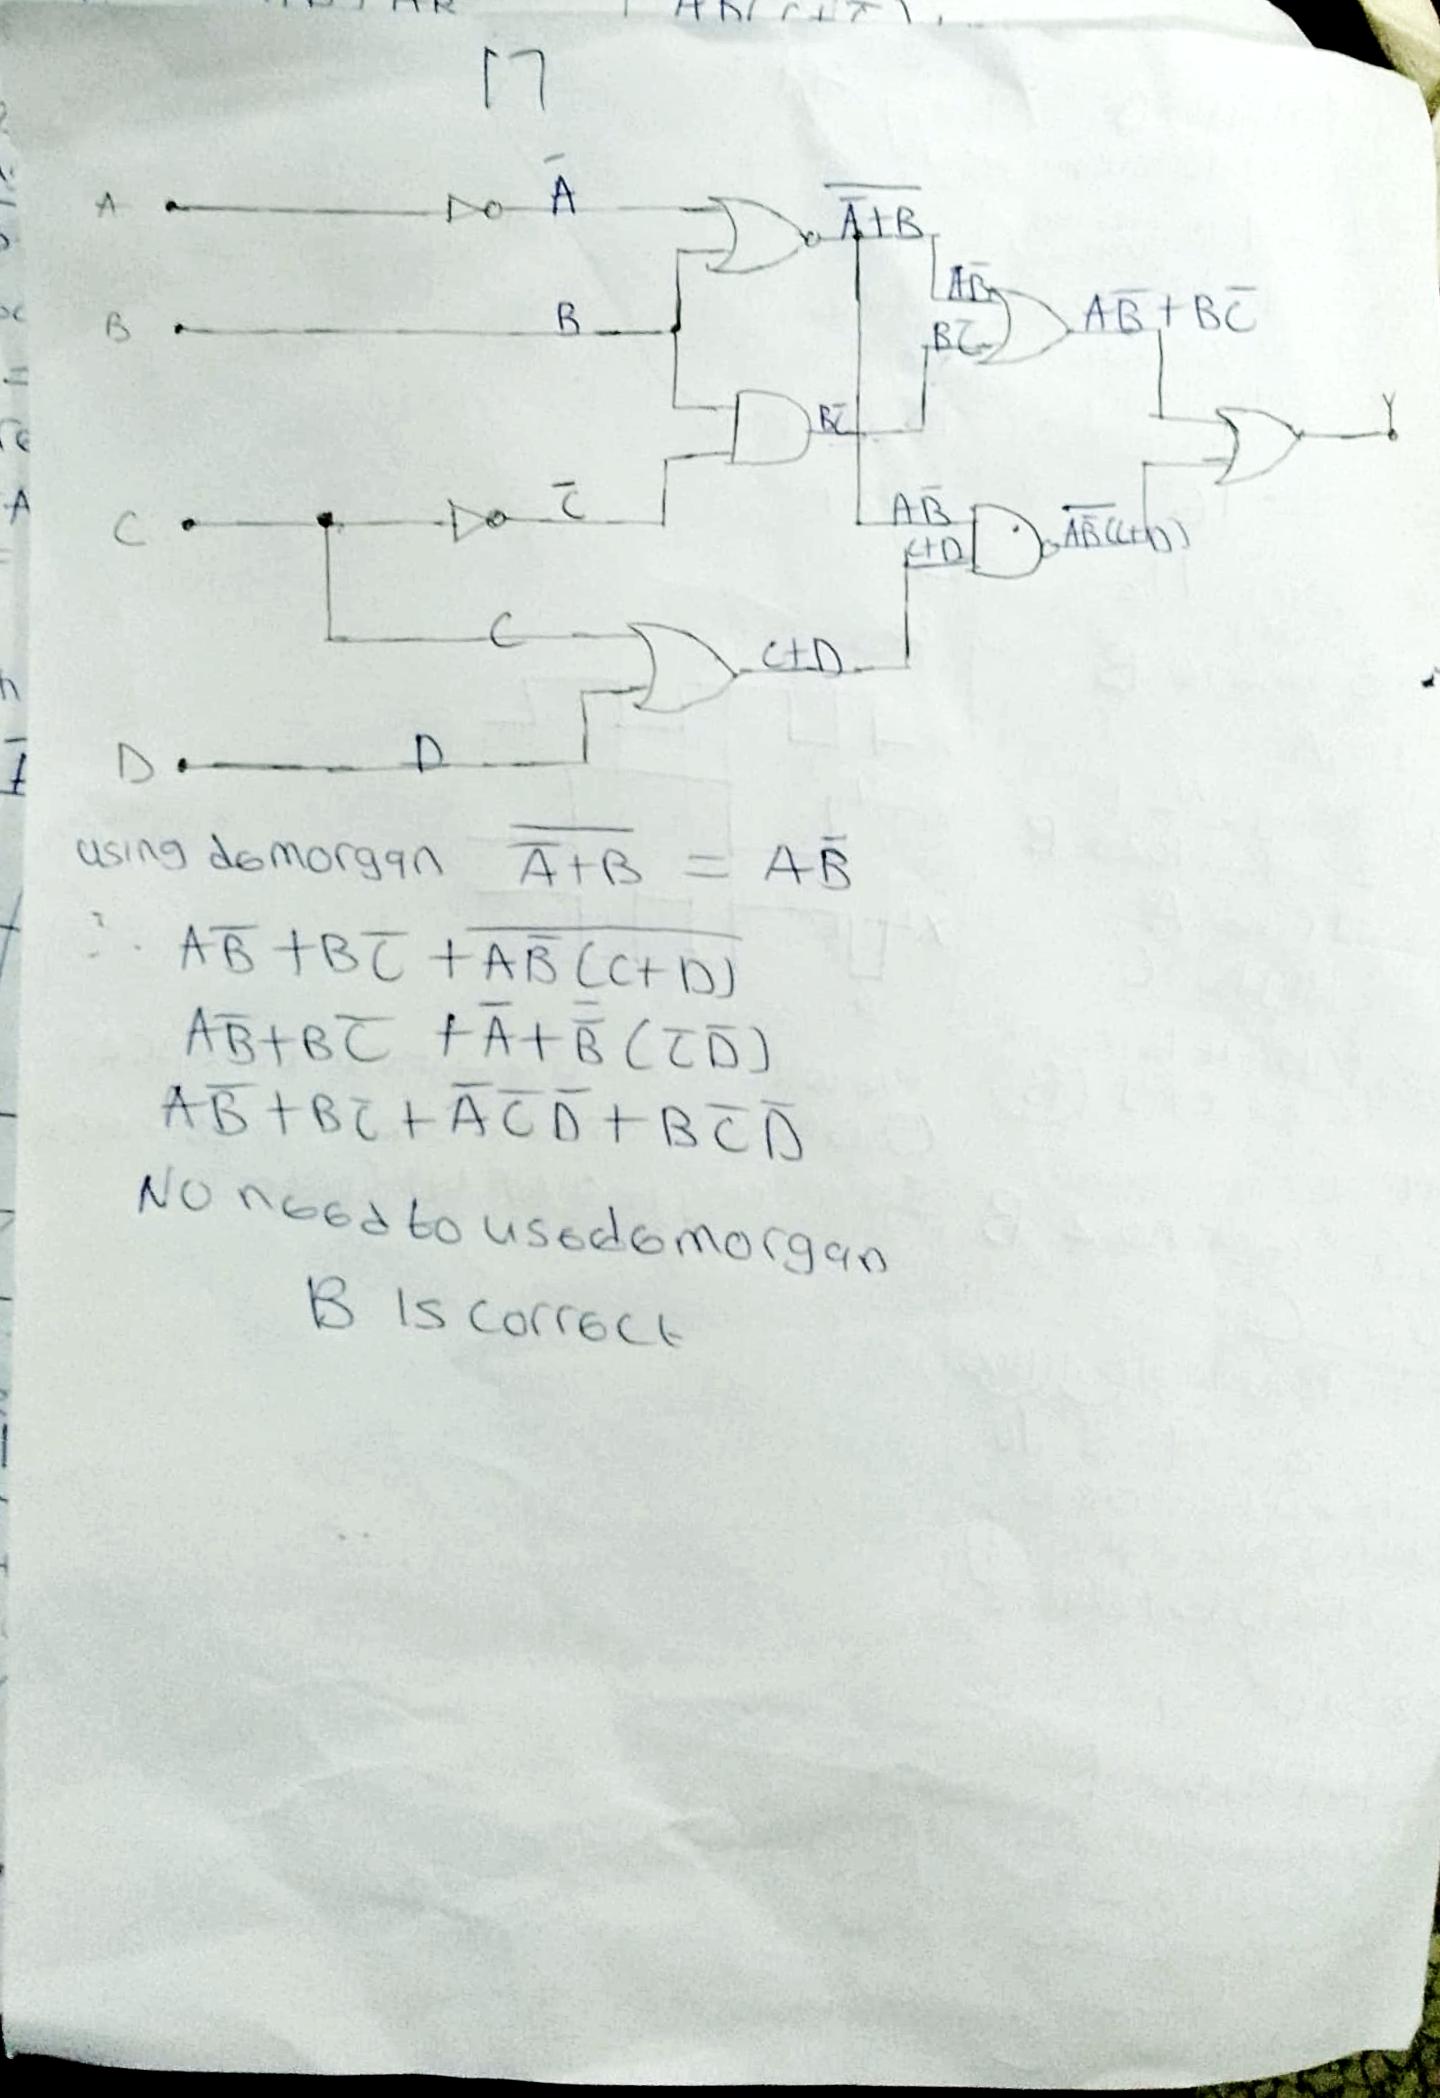 17
A
Ā
$\overline{\overline{A}+B}$
AB̄
AB̄ + BC̄
B
B
BC̄
BC̄
Y
C
C̄
AB̄
C+D
$\overline{A\overline{B}(C+D)}$
C
C+D
D
D
using demorgan $\overline{\overline{A}+B}$ = AB̄
∴ AB̄ + BC̄ + $\overline{A\overline{B}(C+D)}$
AB̄+BC̄ + Ā + $\overline{\overline{B}}$ (C̄D̄)
AB̄ + BC̄ + ĀC̄D̄ + BC̄D̄
No need to use demorgan
B is correct